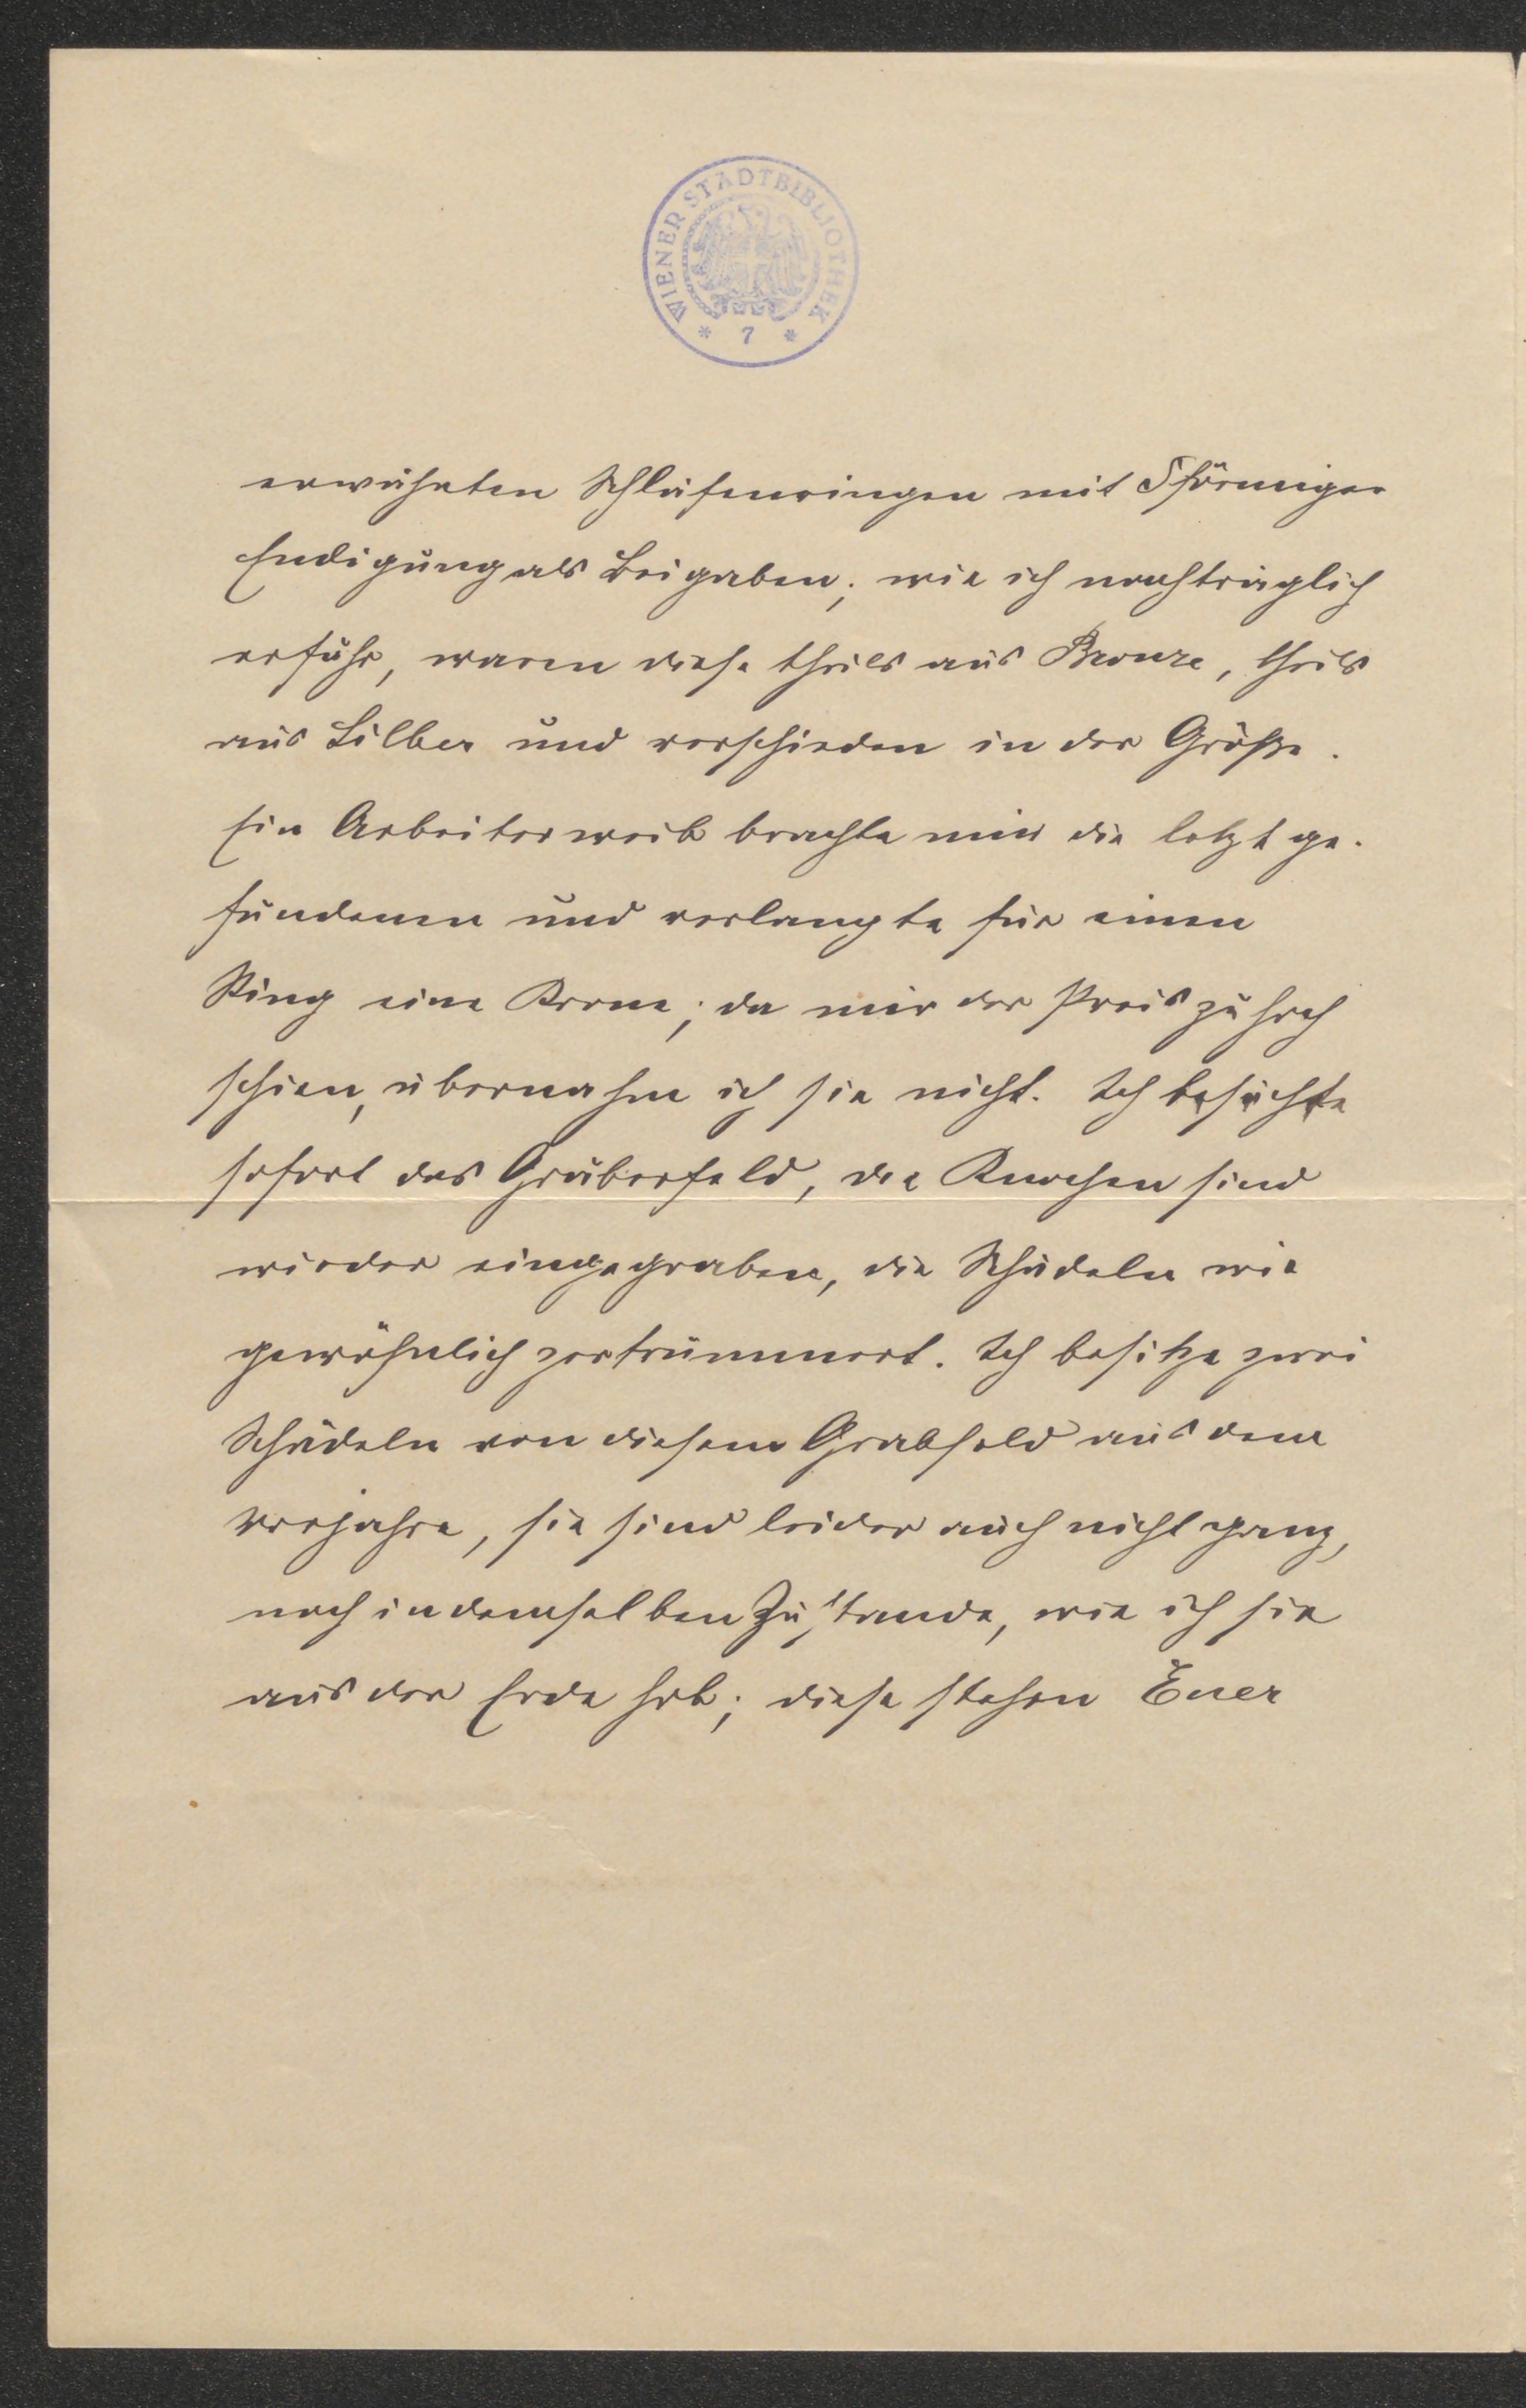 WIENER STADTBIBLIOTHEK
* 7 *
erwähnten Schläfenringen mit Sförmiger
Endigung als Beigaben; wie ich nachträglich
erfuhr, waren diese theils aus Bronze, theils
aus Silber und verschieden in der Größe.
Ein Arbeiterweib brachte mir die letzt ge-
fundenen und verlangte für einen
Ring eine Krone; da mir der Preis zu hoch
schien, übernahm ich sie nicht. Ich besuchte
sofort das Gräberfeld, die Knochen sind
wieder eingegraben, die Schädeln wie
gewöhnlich zertrümmert. Ich besitze zwei
Schädeln von diesem Grabfeld aus dem
Vorjahre, sie sind leider auch nicht ganz,
noch in demselben Zustande, wie ich sie
aus der Erde hob; diese stehen Euer